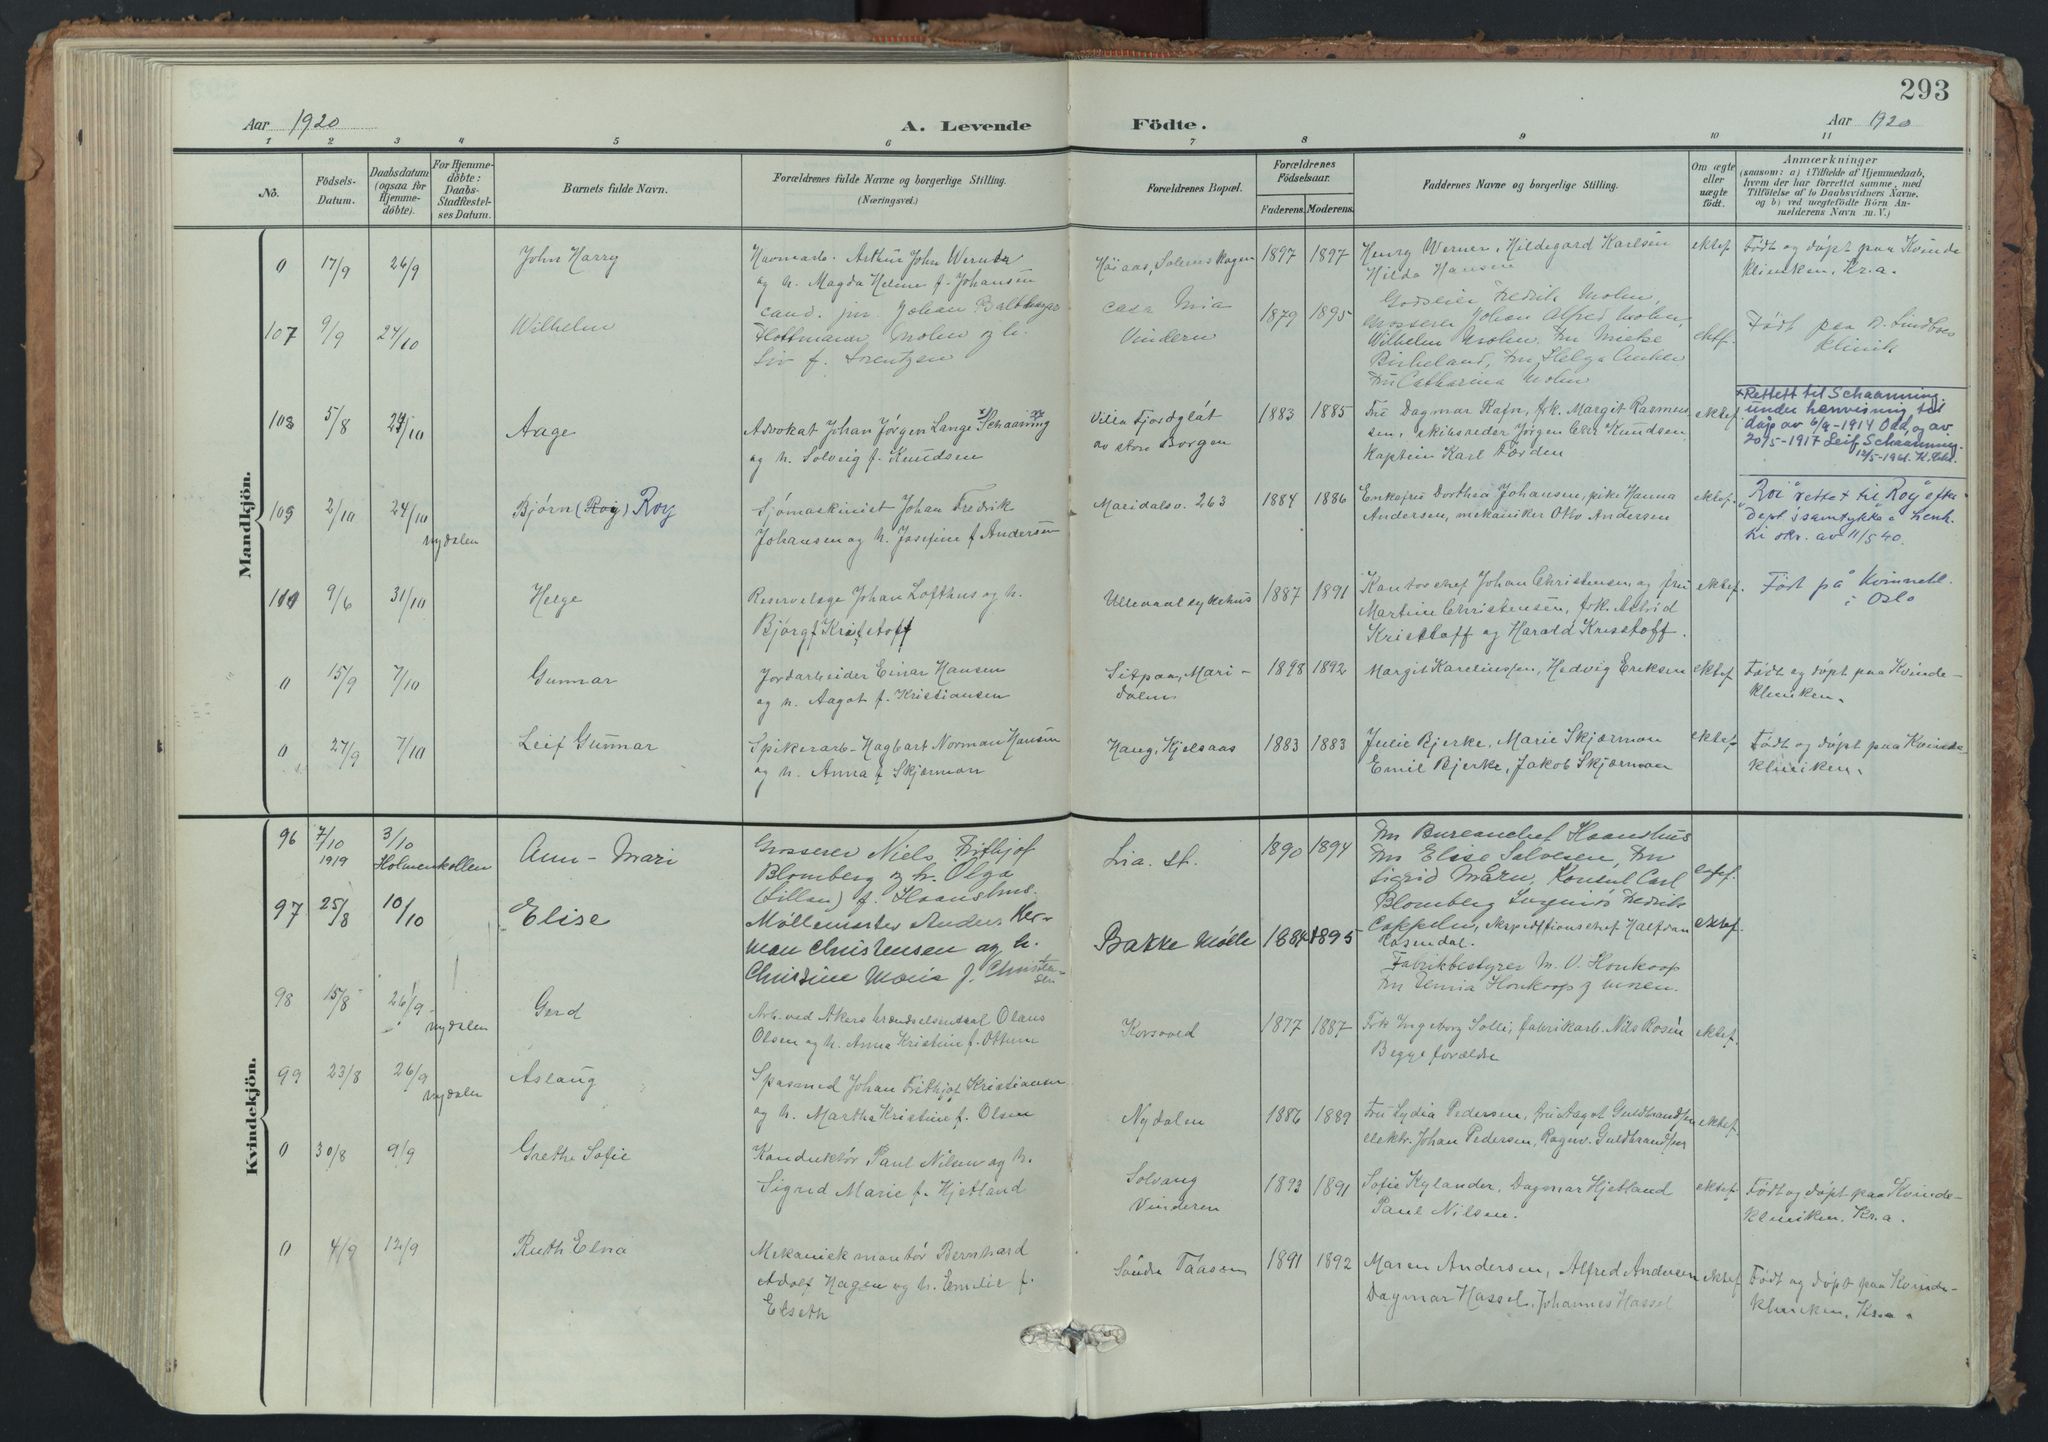 293
Aar 1920 A. Levende Födte. Aar 1920
1 2 3 4 5 6 7 8 9 10 11
No.
Födsels-
Datum.
Daabsdatum
(ogsaa for
Hjemme-
döbte).
For Hjemme-
döbte:
Daabs-
Stadfæstel-
ses Datum.
Barnets fulde Navn.
Forældrenes fulde Navne og borgerlige Stilling.
(Næringsvei.)
Forældrenes Bopæl.
Forældrenes
Födselsaar.
Faderens. Moderens.
Faddernes Navne og borgerlige Stilling.
Om ægte
eller
uægte
födt.
Anmærkninger
(saasom: a) i Tilfælde af Hjemmedaab,
hvem der har forrettet samme, med
Tilföielse af to Daabsvidners Navne.
og b) ved uægtefödte Börn An-
melderens Navn m. V.)
Mandkjön.
0 17/9 26/9 John Harry
Havnearb. Arthur John Werner
og h. Magda Helene f. Johansen
Høiaas, Solemskogen
1897 1897
Henry Werner, Hildegard Karlsen
Hilda Hansen
ektef.
Født og døpt paa Kvinde
kliniken, Kr.a.
107 9/9 24/10 Wilhelm
cand. jur. Johan Balthazar
Flottmann Mohn og h.
Liv f. Lorentzen
Casa Mia
Vindern
1879 1895
Godseier Fredrik Mohn,
Grosserer Johan Alfred Mohn,
Wilhelm Mohn, Fru Mieke
Birkeland, Fru Helga Anker
Fru Catharina Mohn
ektf.
Født paa D. Lindboes
klinik
108 5/8 24/10 Aage
Advokat Johan Jørgen Lange Schaaning
og h. Solveig f. Knudsen
Villa Fjordgløt
av store Borgen
1883 1885
Fru Dagmar Rafn, frk. Margit Rasmus
sen, skibsreder Jørgen Chr Knudsen
Kaptein Karl Færden
ektef
Rettett til Schaanning
under henvisning til
dåp av 6/9-1914 Odd, og av
20/5-1917 Leif Schaanning.
12/5-1961. K. Chr.
109 2/10 24/10 Nydalen Bjørn (Roy) Roy
Sjømaskinist Johan Fredrik
Johansen og h. Josefine f. Andersen
Maridalsv. 263
1884 1886
Enkefru Dorthea Johansen, pike Hanna
Andersen, mekaniker Otto Andersen
ektef.
"Roi" rettet til "Roy" efter
Dept's samtykke i henh.
til skr. av 11/5 40.
110 9/6 31/10 Helge
Reservelæge Johan Lofthus og h.
Bjørg f. Kristoff
Ullevaal sykehus
1887 1891
Kontorchef Johan Christensen og fru
Martine Christensen, frk. Astrid
Kristoff og Harald Kristoff.
ektef.
Født på Kvinnekl.
i Oslo
0 15/9 7/10 Gunnar
Jordarbeider Einar Hansen
og h. Aagot f. Kristiansen
Sitpaa, Mari-
dalen
1898 1892
Margit Kareliussen, Hedvig Eriksen
ektef
Født og døpt paa Kvinde-
kliniken.
0 27/9 7/10 Leif Gunnar
Spikerarb. Hagbart Norman Hansen
og h. Anna f. Skjærman
Haug, Kjelsaas
1883 1883
Julie Bjerke, Marie Skjærman
Emil Bjerke, Jakob Skjærman
ektef.
Født og døpt paa Kvinde
kliniken.
Kvindekjön.
96 7/10 1919 3/10 Holmenkollen Ann-Mari
Grosserer Niels Fritjof
Blomberg og h. Olga
(Lillan) f. Haanshus.
Lia. st.
1890 1894
Fru Bureauchef Haanshus
Fru Elise Salvesen, Fru
Sigrid Mårn, Konsul Carl
Blomberg
ektef.
97 25/8 10/10 Elise
Møllemester Anders Her-
man Christensen og h.
Christine Marie f. Christen-
sen
Bakke Mølle
1884 1895
Fredrik
Cappelen, ekspeditionschef Halfdan
Rosendal.
Fabrikbestyrer M. V. Honkoop
Fru Honkoop
ektef.
98 15/8 26/9 Nydalen Gerd
Arb. ved Akers brændselscentral Olaus
Olsen og h. Anna Kristine f. Ottum
Korsvold
1877 1887
Frk Ingeborg Solli, fabrikarb. Nils Rosén
Begge forældre
ektef.
99 23/8 26/9 Nydalen Aslaug
Johan Frithjof Kristiansen
og h. Martha Kristine f. Olsen
Nydalen
1886 1889
Fru Lydia Pedersen, fru Aagot Guldbrandsen
elektr. Johan Pedersen, Ragnv. Guldbrandsen
ektef.
0 30/8 9/9 Grethe Sofie
Konduktør Paul Nilsen og h.
Sigrid Marie f. Hjetland
Solvang
Vinderen
1893 1891
Sofie Kylander, Dagmar Hjetland
Paul Nilsen.
ektef.
Født og døpt paa Kvinde-
kliniken, Kr.a.
0 4/9 12/9 Ruth Elna
Mekanisk montør Bernhard
Adolf Hagen og h. Emilie f.
Elseth
Søndre Taasen
1891 1892
Maren Andersen, Alfred Andersen
Dagmar Hassel, Johannes Hassel
ektef
Født og døpt paa Kvinde-
kliniken, Kr.a.